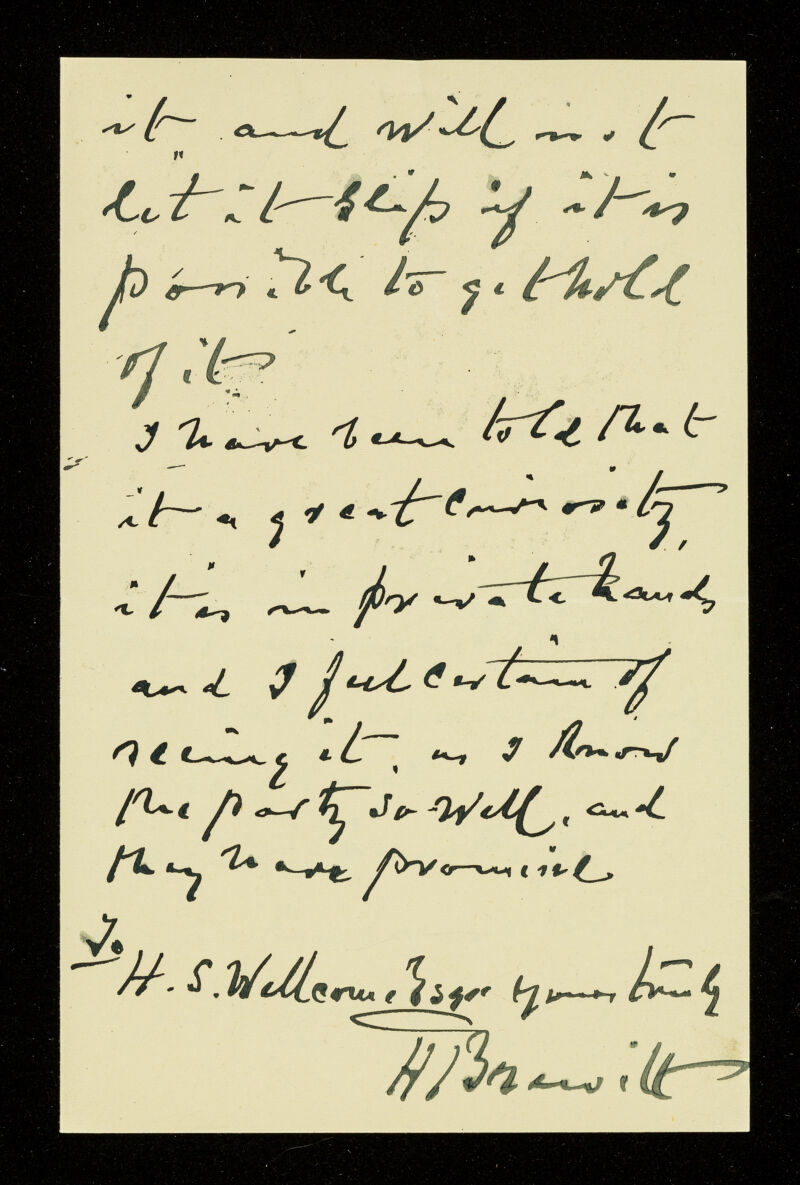 it and will not
let it slip if it is
possible to get hold
of it
I have been told that
it a great curiosity,
it is in private hands
and I feel certain of
seeing it. as I know
the party so well, and
they have promise
To
H. S. Wellcome Esqr yours truly
H Brewitt